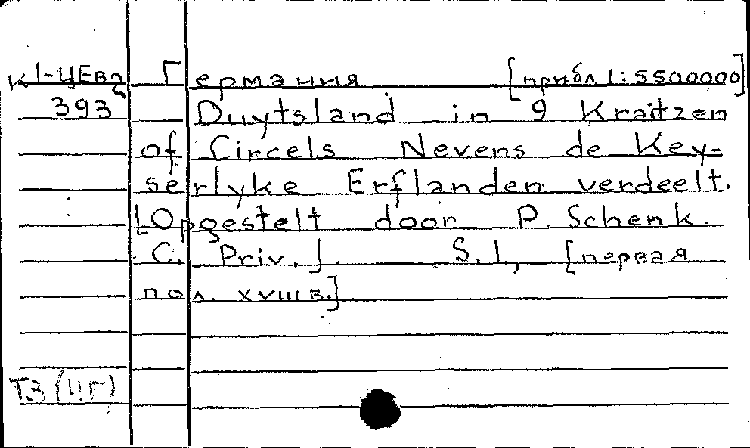 К1-ЦЕвр Германия [прибл 1:5500000]
393 Duytsland in 9 Kraitzen
of Circels Nevens de Key-
serlyke Erflanden verdeelt.
[Opgestelt door P. Schenk.
C. Priv.]. S.l., [первая
пол. XVIII в.]
ТЗ (ЦГ)